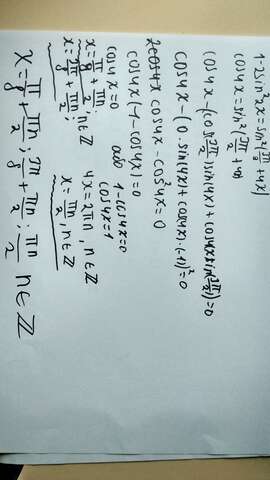 1-2sin²2x=sin²(3π/2+4x)
cos4x=sin²(3π/2+4x)
cos4x-(cos(3π/2)sin(4x)+cos4x sin(3π/2))²=0
cos4x-(0·sin(4x)+cos(4x)·(-1))²=0
cos4x-cos²4x=0
cos4x(1-cos4x)=0
cos4x=0 або 1-cos4x=0
cos4x=1
x=π/8+πn/2, n∈ℤ 4x=2πn, n∈ℤ
x=3π/8+πn/2; x=πn/2, n∈ℤ
x=π/8+πn/2; 3π/8+πn/2; πn/2 n∈ℤ